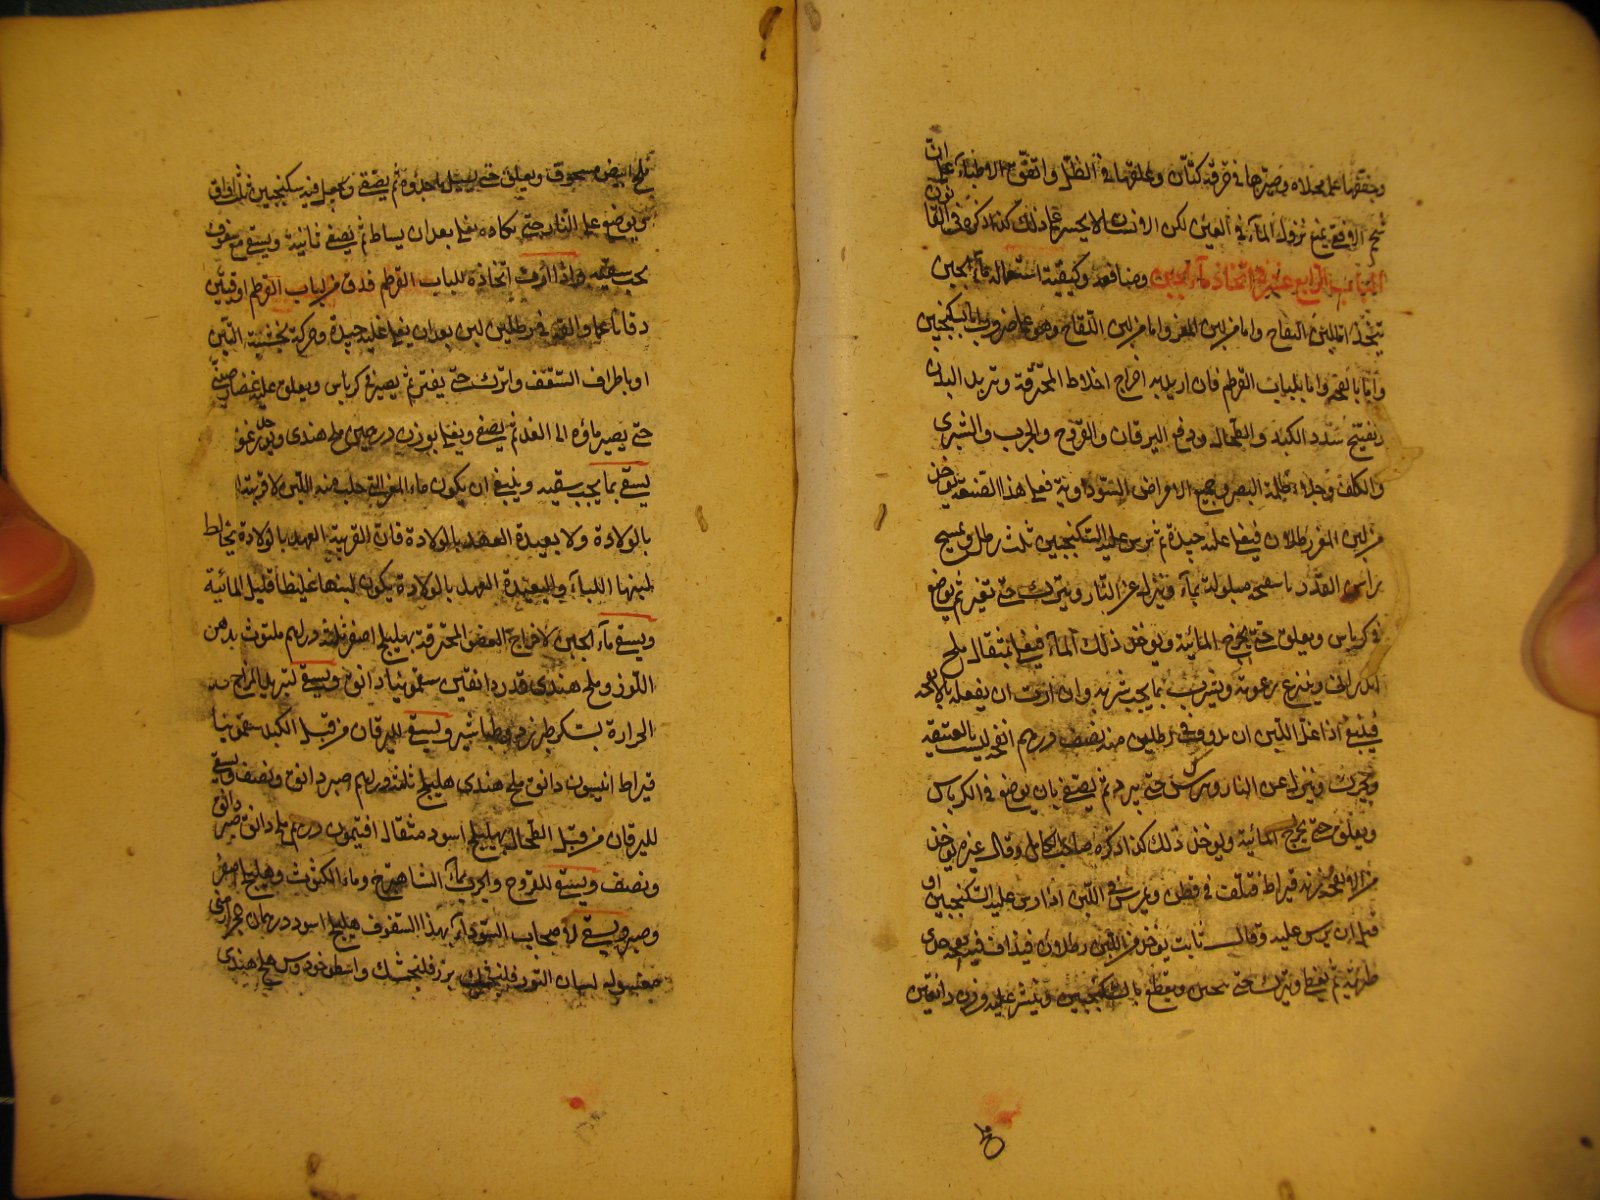 وجففها على مخلاه وصيرها في خرقة كتان وعلقها في الظل واتفق الاطباء على ان
شحم الافعى يمنع نزول المآء في العين لكن الانسان لا يجسر على ذلك كذا ذكره في القانون
الباب الرابع عشر في اتخاذ مآء الجبن ومنافعه وكيفية استعماله مآء الجبن
يتخذ اما من لبن اللقاح واما من لبن المعز واما من لبن اللقاح وهو على ضروب اما بالسكنجبين
واما بالانفحة واما بلباب القرطم فان اريد به اخراج اخلاط المحترقة وتبريد البدن
وتفتيح سدد الكبد والطحال ودفع اليرقان والقروح والجرب والشرى
والكلف وجلاء ظلمة البصر وجميع الامراض السوداوية فعلى هذا الصنعة يؤخذ
من لبن المعز رطلان فيغلى غلية جيدة ثم يرس عليه السكنجبين ثلث رطل ويمسح
براس القدر باسفنجة مبلولة بمآء وينزل عن النار ويترك حتى تغير ثم يوضع
في كرباس ويعلق حتى يخرج المائية ويؤخذ ذلك المآء فيغلى بمثقال ملح
اندراني وينزع رغوته ويشرب بما يجب شربه وان اردت ان يفعله بالانفحة
فينبغي اذا غلى اللبن ان يدوف في رطلين منه نصف درهم انفحة ليست بالعتيقة
ويحرك وينزل عن النار ويرس حتى يبرد ثم يصفى بان يوضع في الكرباس
ويعلق حتى يخرج المائية ويؤخذ ذلك كذا ذكره صاحب الكامل وقال غيره يؤخذ
من الانفحة زنة قيراط فتلقت في قطن ويمرس في اللبن اذا رس عليه السكنجبين او
قبل ان يرس عليه وقال ثابت يؤخذ من اللبن رطلان فيداف فيه انفحة جدى
طرية ثم يغطى ويترك حتى يجبن ويقطع بالسكنجبين وينثر عليه وزن دانقين
ملح ابيض مسحوق ويعلق حتى يسيل ماءه ثم يصفى ويجعل فيه سكنجبين ثلث اواق
ويوضع على النار حتى يكاد يغلى بعد ان يساط ثم يصفى ثانية ويسقى مع سفوف
يجب سقيه واذا اردت اتخاذه للباب القرطم فدق من لباب القرطم اوقيتين
دقا ناعما والقه في رطلين لبن بعد ان يغلى غلية جيدة وحركه بخشبة التين
او باطراف السعف واترك حتى يفتر ثم يصير في كرباس ويعلق على غضار صيني
حتى يصير ماؤه الى الغد ثم يصفى ويغلى بوزن درهمين ملح هندي ويؤخذ رغوته
يسقى بما يجب سقيه وينبغي ان يكون ماء المعز التي حلب منه اللبن لا قريبة
بالولادة ولا بعيدة العهد بالولادة فان القريبة العهد بالولادة يخالط
لبنها اللبآء والبعيدة العهد بالولادة يكون لبنها غليظا قليل المائية
ويسقى مآء الجبن لاخراج العض المحترقة بهليلج اصفر ثلثة دراهم ملتوت بدهن
اللوز وملح هندي قدر دانقين سقمونيا دانق ويسقى لتبريد المزاج
الحرارة بسكر طبرزد وطباشير ويسقى لليرقان من قبل الكبد سقمونيا
قيراط انيسون دانق ملح هندي هليلج ثلثة دراهم صبر دانق ونصف ويسقى
لليرقان من قبل الطحال بهليلج اسود مثقال افتيمون درهم ملح دانق صبر دانق
ونصف ويسقى للقروح والجرب بمآء الشاهترج وماء الكشوث وهليلج اصفر
وصبر ويسقى لاصحاب السوداء بهذا السفوف هليلج اسود درهمان حجر ارمني
مغسول لسان الثور فلنجمشك بزر فلنجمشك واسطوخودوس ملح هندي